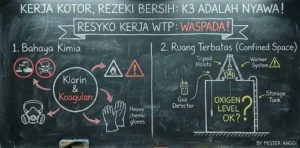 KERJA KOTOR, REZEKI BERSIH: K3 ADALAH NYAWA!
RESYKO KERJA WTP: WASPADA!
1. Bahaya Kimia
Klorin
& Koagulan
Heavy
chemic
gloves
2. Ruang Terbatas (Confined Space)
Tripod
Hoists
Worker
System
Gas
Detector
Storage
Tank
OXIGEN
LEVEL
OK?
?
BY MISTER ANGGI